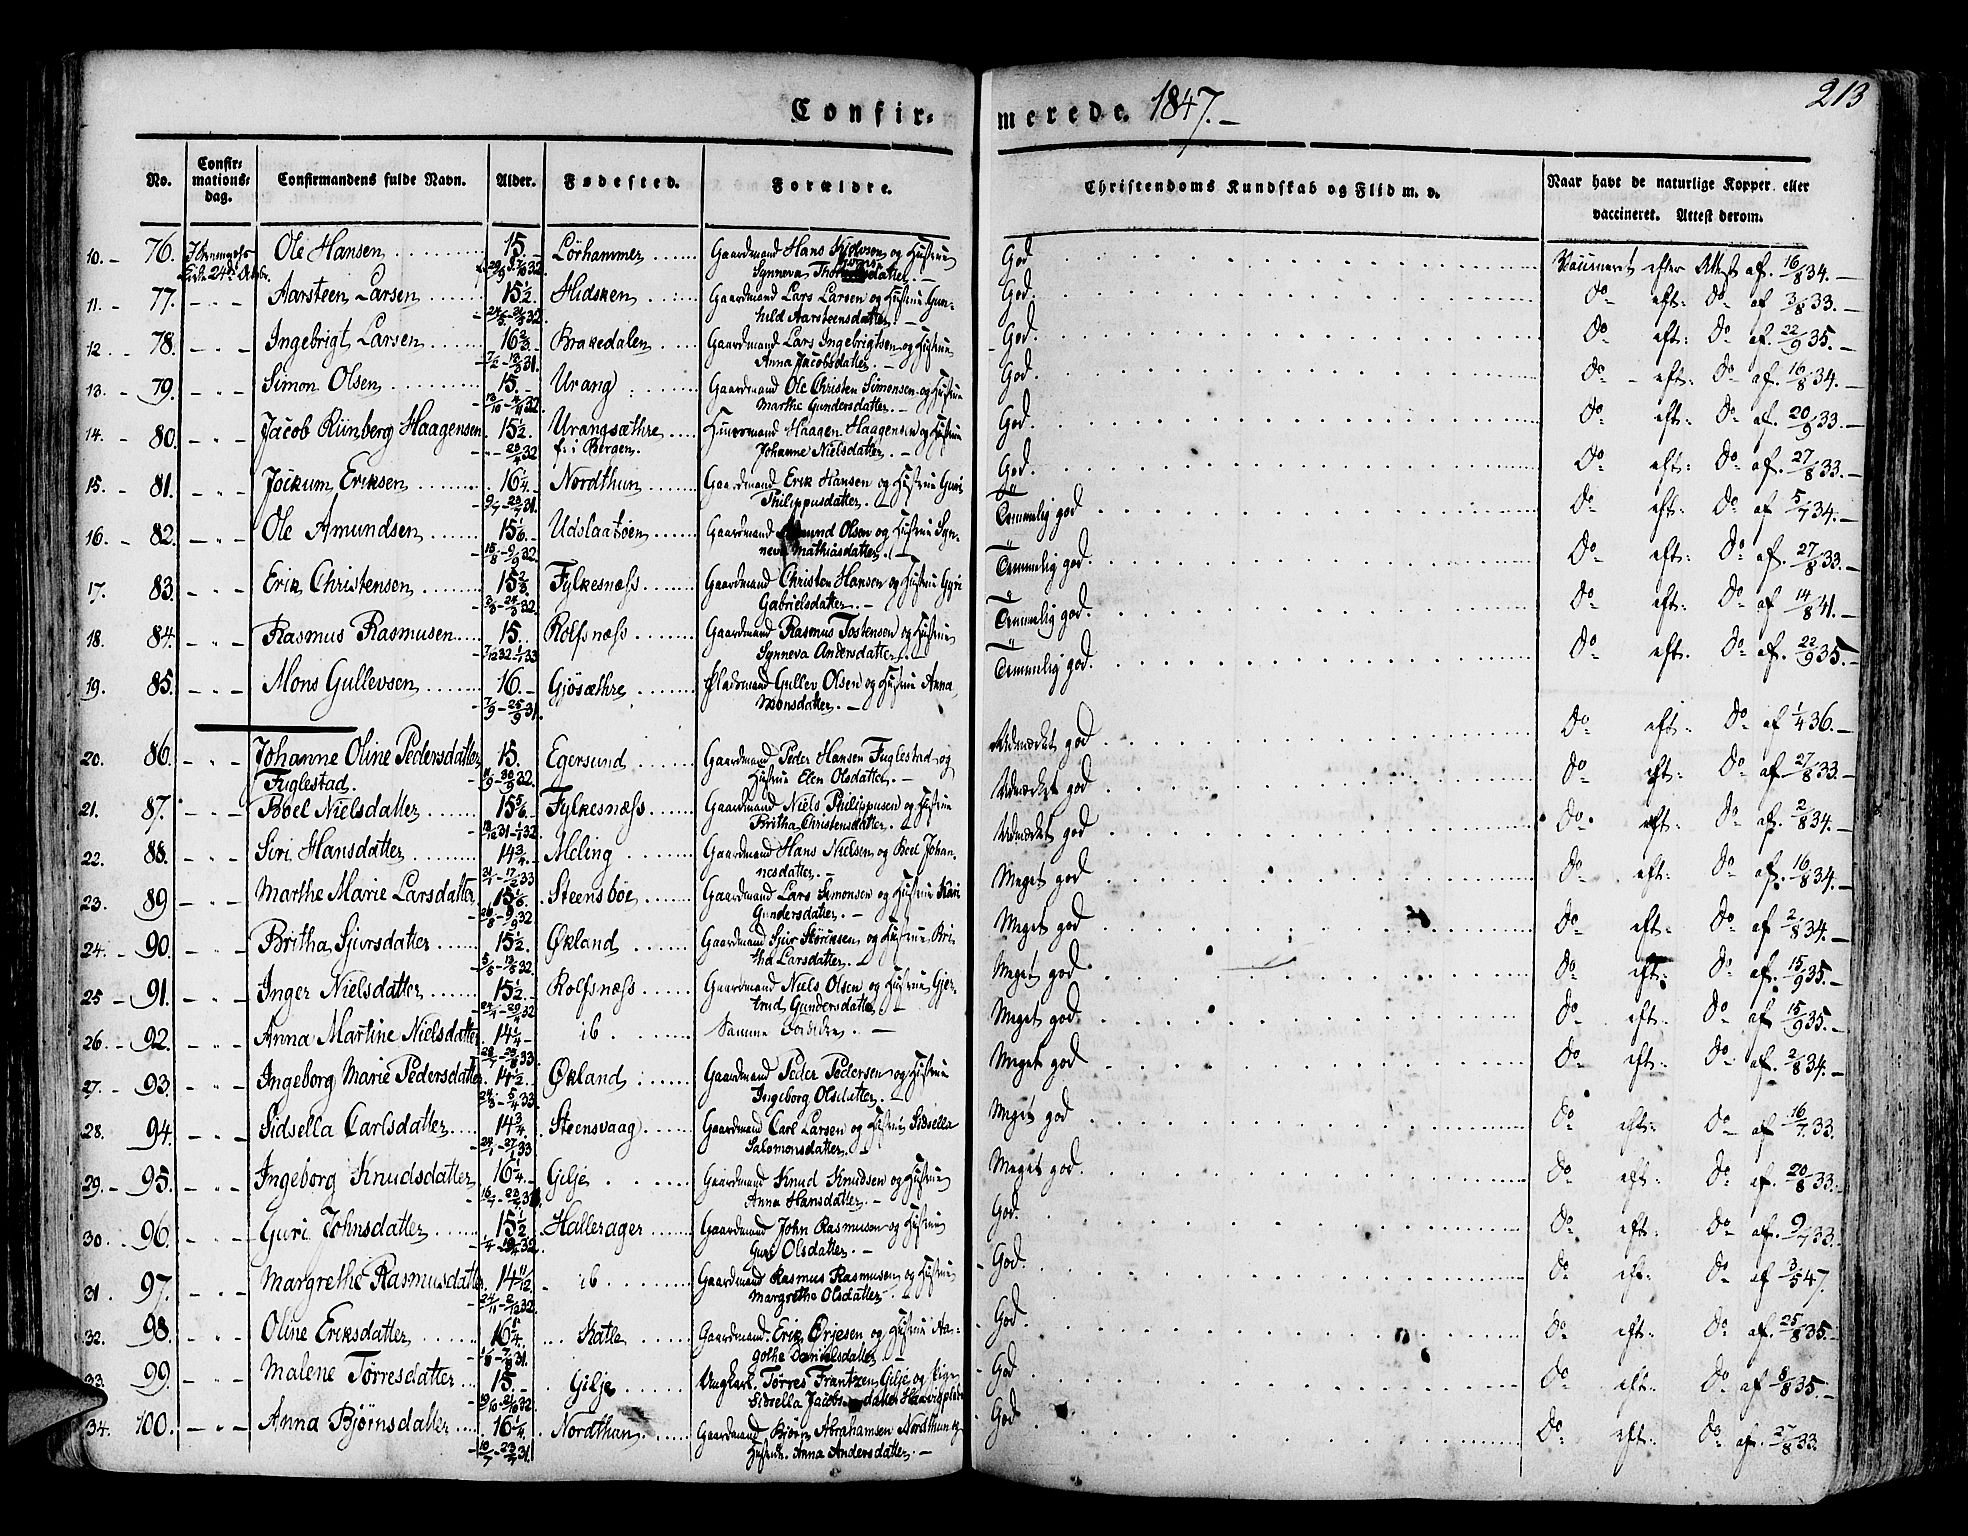 213
Confir- merede. 1847.-
No. Confir-mations-dag. Confirmandens fulde Navn. Alder. Fødested. Forældre. Christendoms Kundskab og Flid m. v. Naar havt de naturlige Kopper eller vaccineret. Attest derom.
10.- 76. Ole Hansen 15 Lørhammer Gaardmand Hans og Hustrue God Vaccineret efter Attest af 16/8 34.-
24de Octbr. Synneva
11.- 77. Aarsteen Larsen 15 1/2 Hidsken Gaardmand Lars Larsen og Hustrue Gun- God. do eft: do af 3/8 33.-
hild Aarsteensdatter.-
12.- 78. Ingebrigt Larsen 16 2/3 Brakedalen Gaardmand Lars Ingebrigtsen og Hustrue God. do eft: do af 22/9 35.-
Anna Jacobsdatter.-
13.- 79. Simon Olsen 15.- Urang Gaardmand Ole Christen Simonsen og Hustrue God. do eft: do af 16/8 34.-
13/10 - 4/11 32. Marthe Gundersdatter.-
14.- 80. Jacob Rünberg Haagensen 15 1/2. Urangsæthre Huusmand Haagen Haagensen og Hustrue God. do eft: do af 20/9 33.-
f: i Bergen. Johanne Nielsdatter.-
15.- 81. Jockum Eriksen 16 1/4.- Nordthun Gaardmand Erik Hansen og Hustrue Guri God. do eft: do af 27/8 33.-
Philippusdatter.-
16.- 82. Ole Amundsen 15 1/6.- Udslaatøen Gaardmand Amund Olsen og Hustrue Syn- Temmelig god do eft: do af 5/7 34.-
15/8 - 9/9 32. neva Mathiasdatter.-
17. 83. Erik Christensen 15 2/3. Fylkesnæss Gaardmand Christen Hansen og Hustrue Gyri Temmelig god. do eft: do af 27/8 33.-
Gabrielsdatter.-
18. 84. Rasmus Rasmusen 15. Rolfsnæss Gaardmand Rasmus Tostensen og Hustrue Temmelig god. do eft: do af 14/8 41.-
7/12 32 - 1/1 33 Synneva Andersdatter.-
19. 85. Mons Gullevsen 16.- Gjøsæthre Pladsmand Gullev Olsen og Hustrue Anna Temmelig god. do eft: do af 22/9 35.-
7/9 - 25/9 31. Monsdatter.-
20. 86. Johanne Oline Pedersdatter 15. Egersund Gaardmand Peder Hansen Fuglestad og Udmærket god do eft: do af 1/4 36.-
Fuglestad. 11/9 - 30/9 32. Hustrue Elen Olsdatter.-
21. 87. Boel Nielsdatter 15 5/6. Fylkesnæss Gaardmand Niels Philippusen og Hustrue Udmærket god do eft: do af 27/8 33.-
Britha Christensdatter.-
22. 88. Siri Hansdatter 14 3/4. Meling Gaardmand Hans Nielsen og Boel Johan- Udmærket god do eft: do af 2/8 34.-
31/1 - 17/2 33 nesdatter.-
23. 89 Marthe Marie Larsdatter 15 1/6. Steensbøe Gaardmand Lars Simonsen og Hustrue Kari Meget god do eft: do af 16/8 34.-
26/8 - 9/9 32 Gundersdatter.-
24.- 90. Britha Sjursdatter 15 1/2. Økland Gaardmand Sjur Størksen og Hustrue Bri- Meget god do eft: do af 2/8 34.-
tha Larsdatter.-
25 - 91. Inger Nielsdatter 15 1/2. Rolfsnæss Gaardmand Niels Olsen og Hustrue Gjer- Meget god do eft: do af 15/9 35.-
trud Gundersdatter.-
26.- 92. Anna Martine Nielsdatter 14 1/4 ib Samme Forældre.- Meget god do eft: do af 15/9 35.-
27.- 93. Ingeborg Marie Pedersdatter 14 1/2. Økland Gaardmand Peder Pedersen og Hustrue Meget god do eft: do af 2/8 34.-
Ingeborg Olsdatter.-
28. 94. Sidsella Carlsdatter 14 3/4. Steensvaag Gaardmand Carl Larsen og Hustrue Sidsella Meget god do eft: do af 16/7 33.
24/1 - 27/1 33 Salomonsdatter.-
29.- 95. Ingeborg Knudsdatter 16 1/4. Gilje Gaardmand Knud Knudsen og Hustrue Meget god. do eft: do af 20/8 33.-
Anna Hansdatter.-
30. 96. Guri Johnsdatter 15 1/2 Hallerager Gaardmand John Rasmusen og Hustrue God. do eft: do af 9/7 33.
Guri Olsdatter.-
31 97. Margrethe Rasmusdatter 14 11/12. ib Gaardmand Rasmus Rasmusen og Hustrue God. do eft: do af 3/5 47.
24/11 - 2/12 32. Margrethe Olsdatter.-
32. 98. Oline Eriksdatter 16 1/4 Katle Gaardmand Erik Ørjesen og Hustrue Aa- God. do eft: do af 25/8 35.-
gothe Danielsdatter.-
33 99. Malene Tørresdatter 15.- Gilje Ungkarl. Tørres Frantzen Gilje og Pige God do eft: do af 8/8 35.-
19/10 - 21/10 32. Sidsella Jacobsdatter
34. 100. Anna Bjørnsdatter 16 1/4. Nordthun Gaardmand Bjørn Abrahamsen Nordthun og God do eft: do af 27/8 33.
10/7 - 23/7 31. Hustrue Anna Andersdatter.-